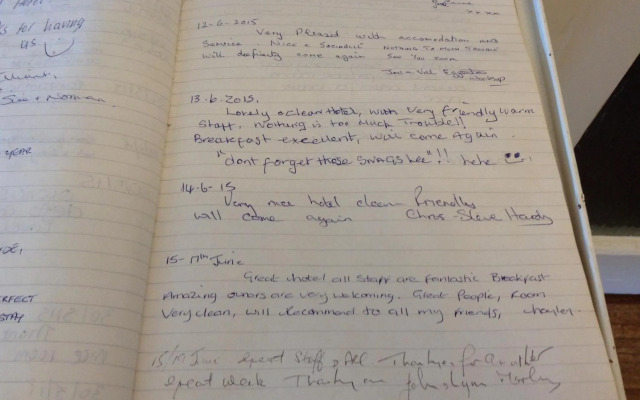 s for having
us
Sid + Norman
YEAR
PERFECT
STAY
xx xx
12-6-2015
Very Pleased with accomodation and
Service. Nice & Sociable NOTHING TO MUCH TROUBLE
Will definitly come again See You Soon
Val
13.6.2015.
Lovely & clean Hotel, with Very friendly warm
Staff. Nothing is too Much Trouble!!
Breakfast excellent, will come Again.
"dont forget those SNAGS Lee"!! hehe
14-6-15
Very nice hotel clean Friendly
will come again Chris - Steve Hardy
15-17th June
Great hotel all Staff are fantastic Breakfast
Amazing owners are very welcoming. Great People, Room
Very clean, will Recommend to all my friends, Hayley.
15/19 June great Staff & All Thankyou for another
great week Thankyou John & Lynn